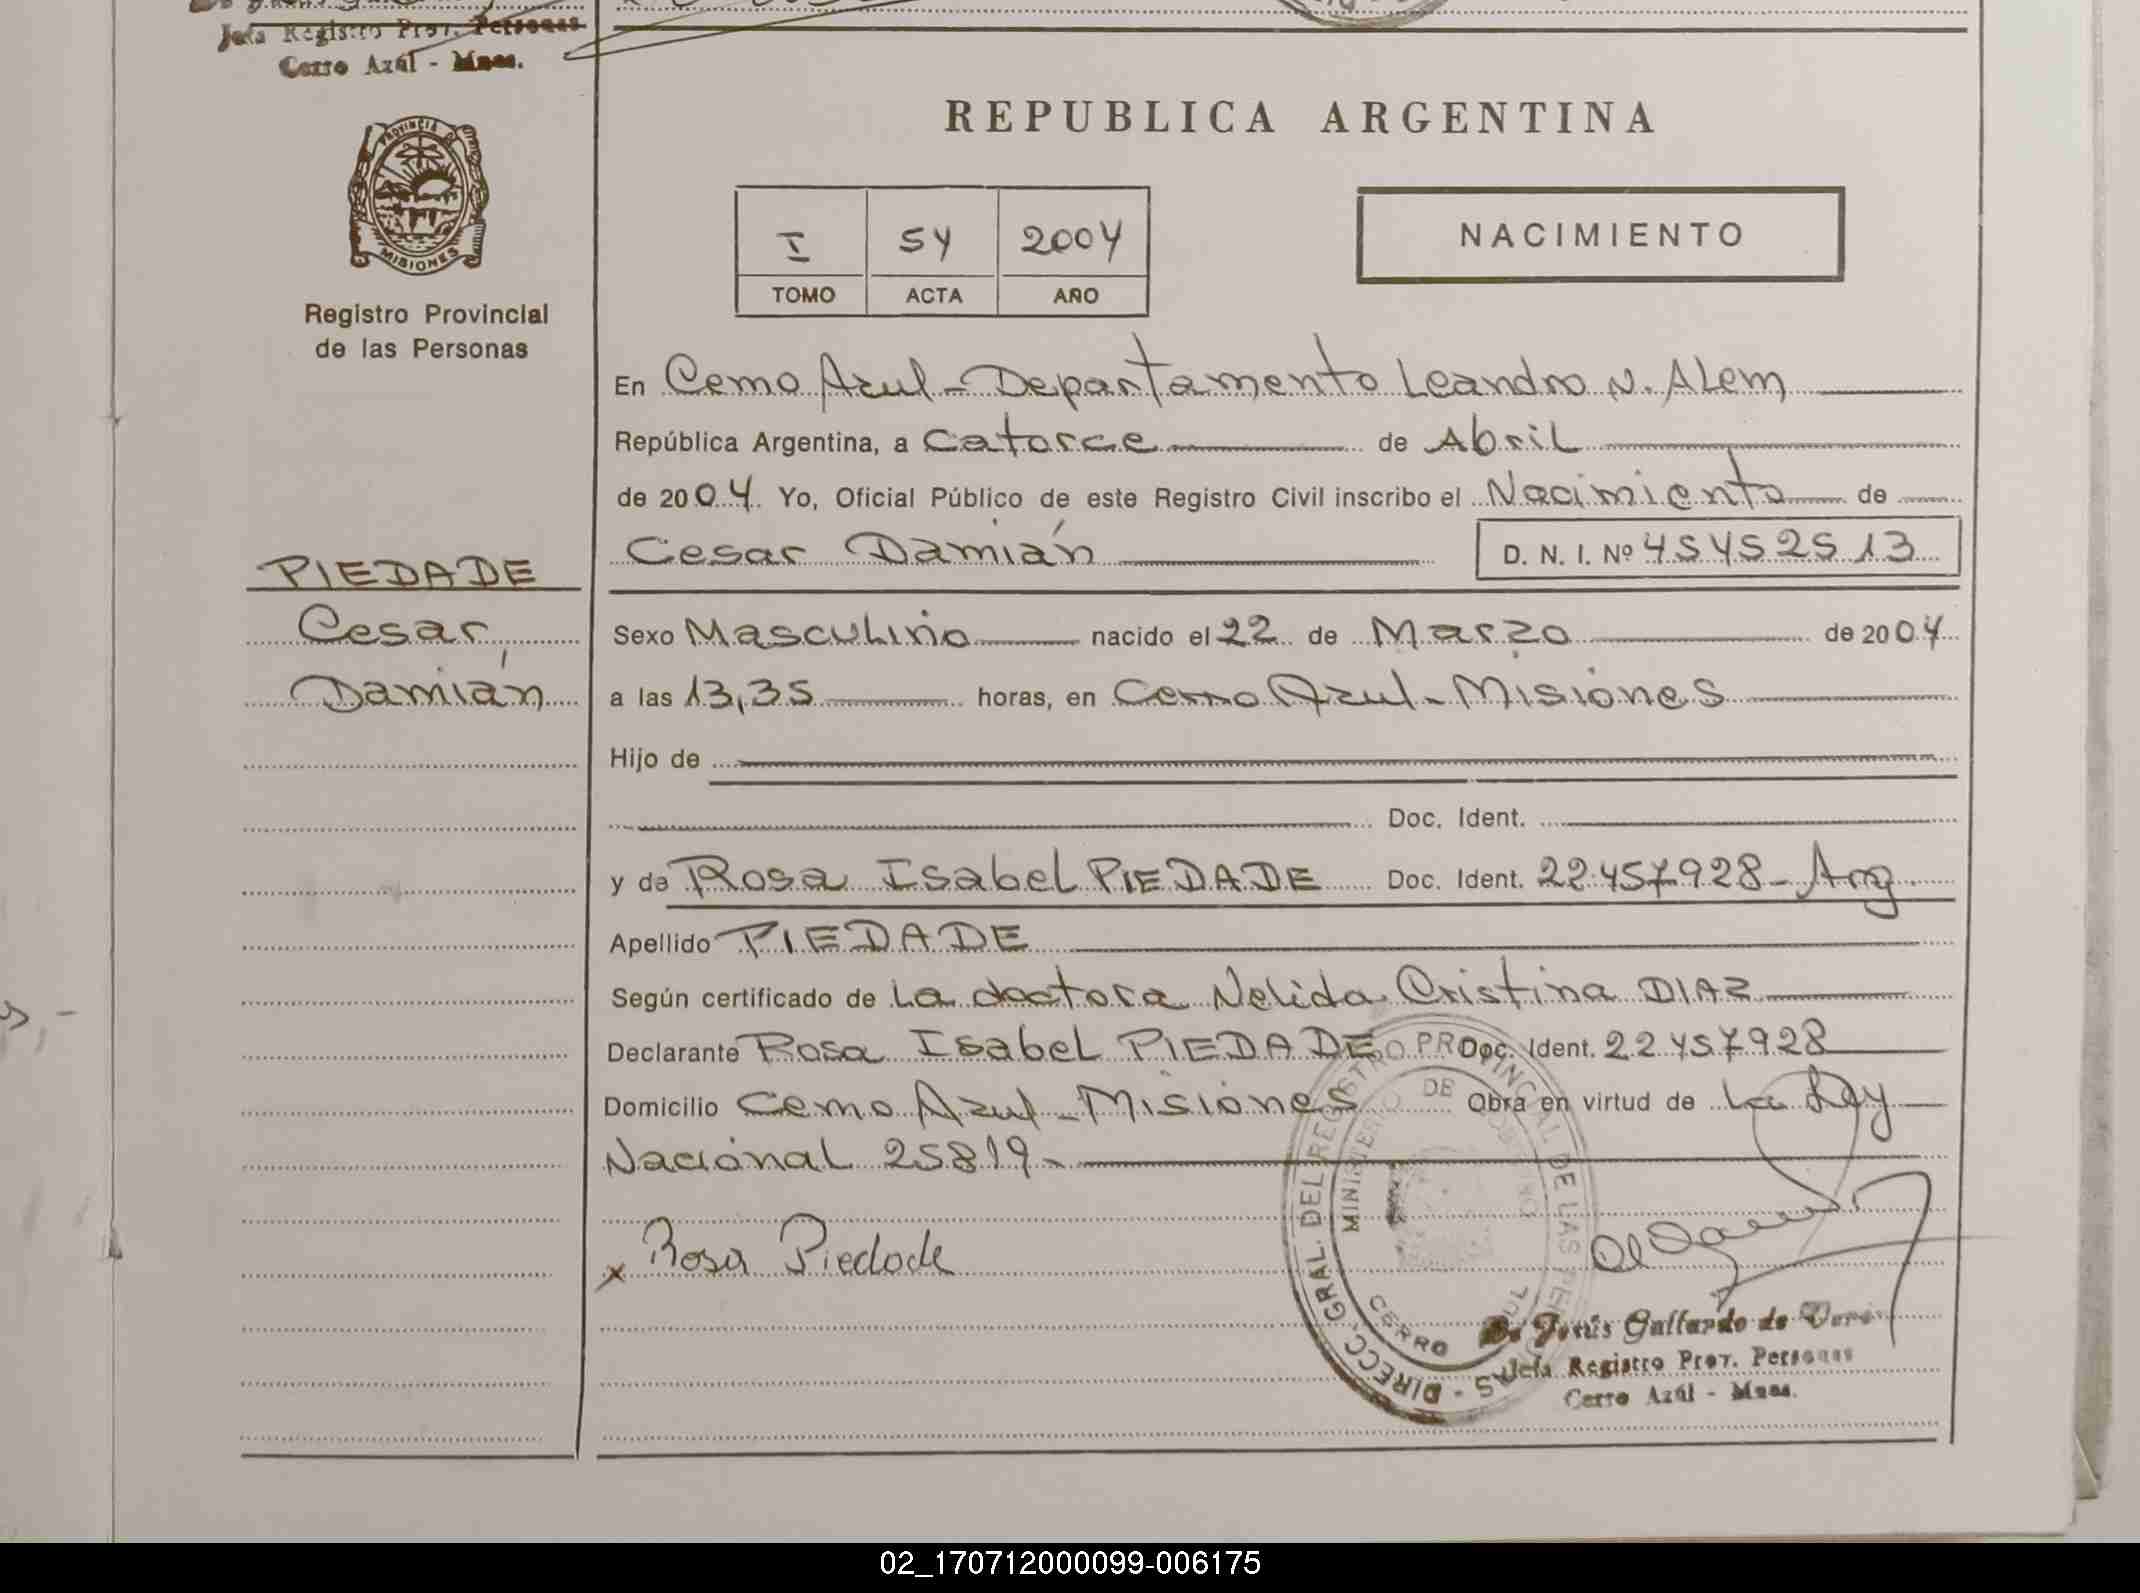 Jefa Registro Prov. Personas
Cerro Azúl - Mnes.
PROVINCIA DE
MISIONES
Registro Provincial
de las Personas
REPUBLICA ARGENTINA
I 54 2004
TOMO ACTA AÑO
NACIMIENTO
En Cerro Azul - Departamento Leandro N. Alem
República Argentina, a Catorce de Abril
de 2004 Yo, Oficial Público de este Registro Civil inscribo el Nacimiento de
Cesar Damián D. N. I. Nº 45452513
PIEDADE
Cesar
Damián
Sexo Masculino nacido el 22 de Marzo de 2004
a las 13,35 horas, en Cerro Azul - Misiones
Hijo de
Doc. Ident.
y de Rosa Isabel PIEDADE Doc. Ident. 22457928 - Arg
Apellido PIEDADE
Según certificado de La doctora Nelida Cristina DIAZ
Declarante Rosa Isabel PIEDADE Doc. Ident. 22457928
Domicilio Cerro Azul - Misiones Obra en virtud de La Ley
Nacional 25819.-
x Rosa Piedade
DIRECC. GRAL. DEL REGISTRO PROVINCIAL DE LAS PERSONAS -
MINISTERIO DE GOBIERNO
CERRO AZUL
De Jesús Gallardo de
Jefa Registro Prov. Personas
Cerro Azúl - Mnes.
02_170712000099-006175